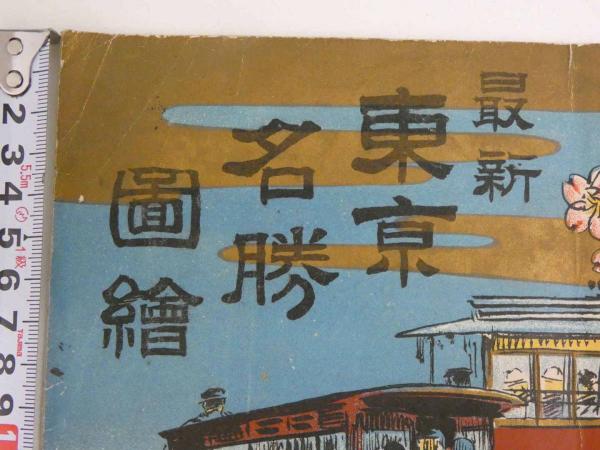 最新
東亰
名勝
圖繪
2
3
4
5
6
7
8
9
1
5.5m
1級
Tajima